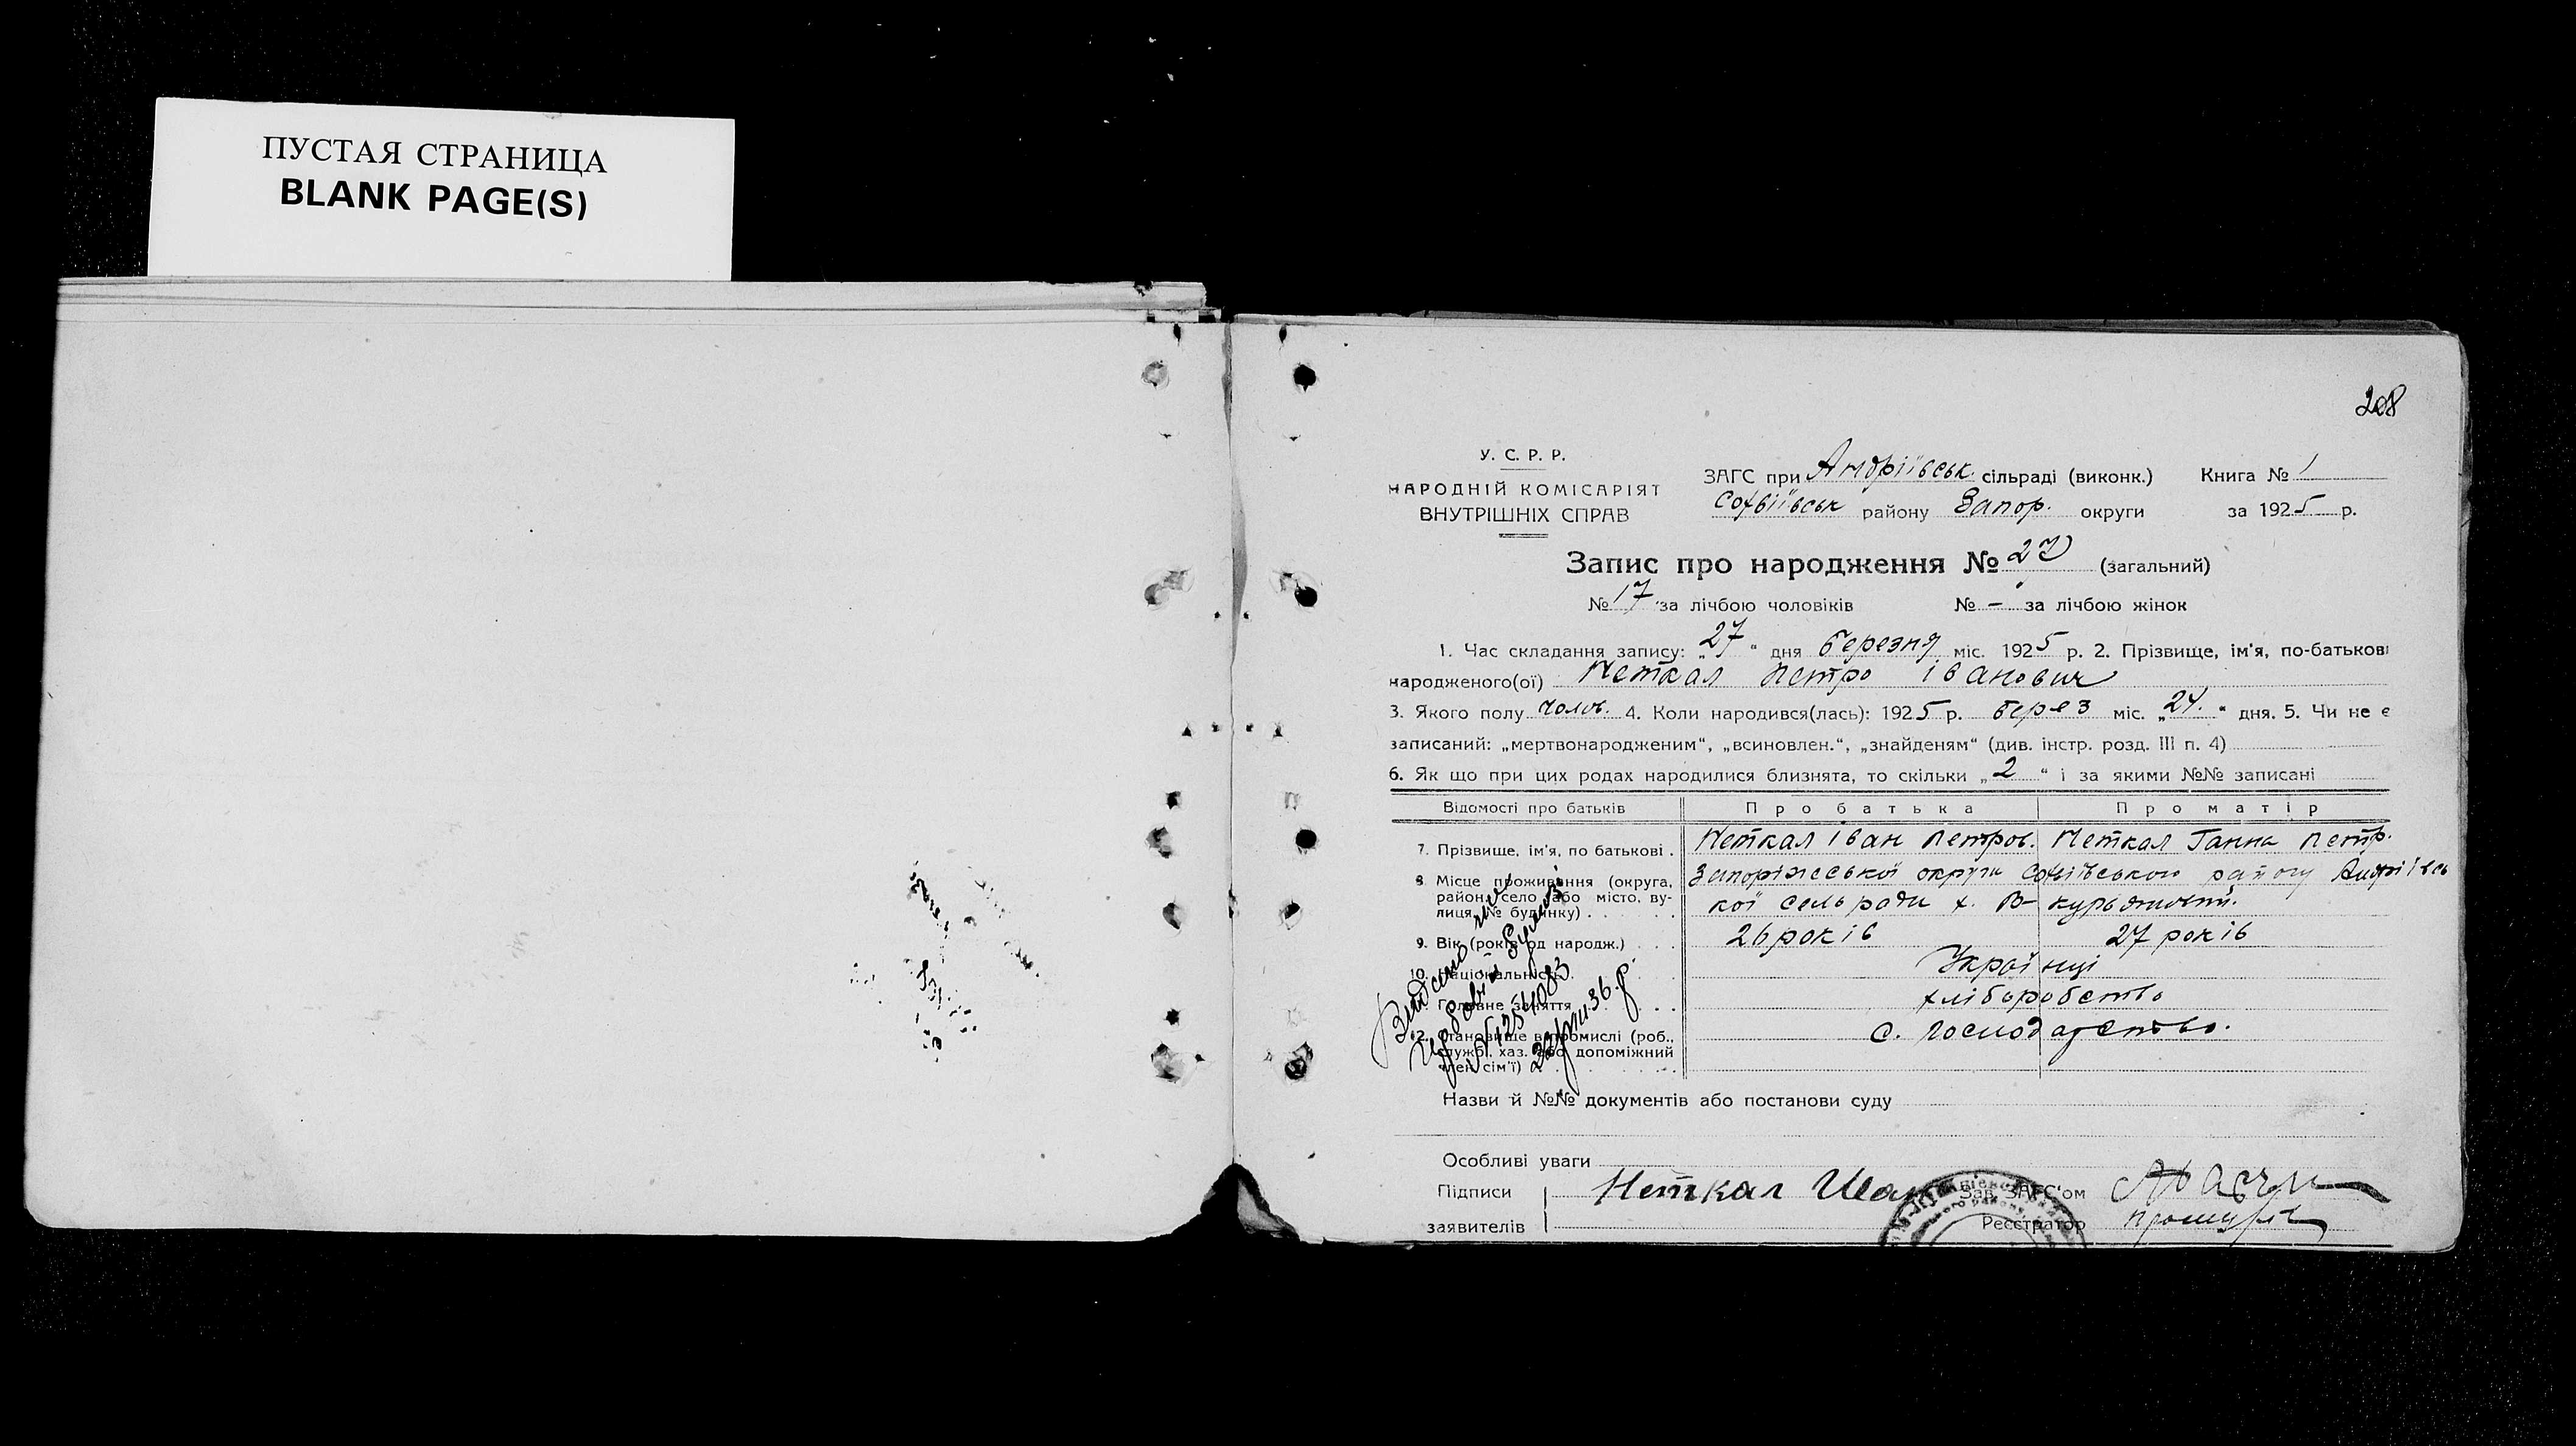 ПУСТАЯ СТРАНИЦА
BLANK PAGE(S)
208
У. С. Р. Р.
НАРОДНІЙ КОМІСАРІЯТ
ВНУТРІШНІХ СПРАВ
ЗАГС при Андріївськ. сільраді (виконк.) Книга № 1
Софіївськ району Запор. округи за 1925 р.
Запис про народження № 27 (загальний)
№ 17 за лічбою чоловіків № – за лічбою жінок
1. Час складання запису: „27" дня березня міс. 1925 р. 2. Прізвище, ім'я, по-батькові
народженого(ої) Неткал Петро Іванович
3. Якого полу чолов. 4. Коли народився(лась): 1925 р. берез міс. „24." дня. 5. Чи не є
записаний: „мертвонародженим", „всиновлен.", „знайденям" (див. інстр. розд. III п. 4)
6. Як що при цих родах народилися близнята, то скільки „2" і за якими №№ записані
Відомості про батьків Про батька Про матір
7. Прізвище, ім'я, по батькові . Неткал Іван Петров. Неткал Ганна Петр.
8. Місце проживання (округа, район, село або місто, вулиця, № будинку) . . . Запоріжської округи Софіївського району Андріївсь
кої сельради х.
9. Вік (років од народж.) . . . 26 років 27 років
10. Національність . . . Українці
Головне заняття . . . хліборобство
12. Становище в промислі (роб., службі. хаз. або допоміжний член сім'ї) . . . с. господарство.
№ 254083
36 р.
Назви й №№ документів або постанови суду
Особливі уваги
Підписи Неткал Иван Зав. ЗАГС'ом
заявителів Реєстратор